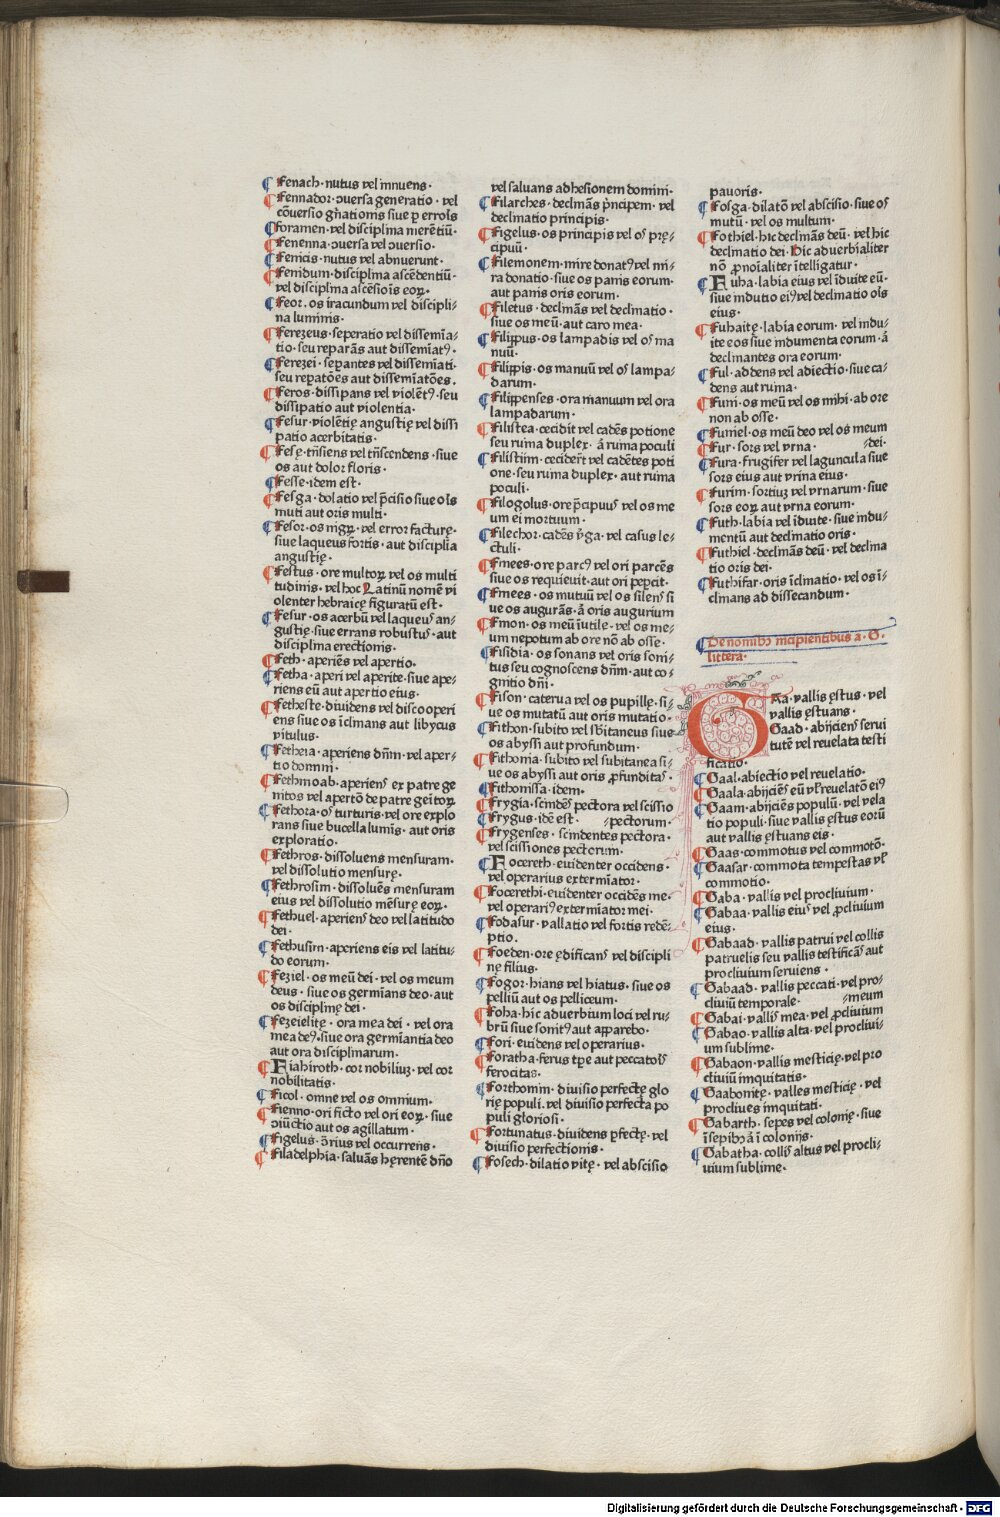 Fenach·nutus vel innuens·
Fennador·ɔuersa generatio·vel
cōuersio gn̄ationis siue ꝑ errois
Foramen·vel disciplina merētiū·
Fenenna·ɔuersa vel ɔuersio·
Fenicis·nutus vel abnuerunt·
Fenidum·disciplina ascēdentiū·
vel disciplina ascēsiōis eoꝝ·
Feor·os iracundum vel discipli⸗
na luminis·
Ferezeus·seperatio vel dissemīa⸗
tio·seu reparās aut dissemīatꝰ·
Ferezei·sepantes vel dissemīati·
seu repatōes aut dissemīatōes.
Feros·dissipans vel violētꝰ·seu
dissipatio aut violentia·
Fesur·violētię angustię vel dissi
patio acerbitatis·
Fesę·trāsiens vel trāscendens·siue
os aut dolor floris·
Fesse·idem est·
Fesga·dolatio vel p̄cisio siue oīs
muti aut oris multi·
Fesor·os nigꝝ·vel error facturę·
siue laqueus fortis·aut disciplīa
angustię·
Festus·ore multoꝝ vel os multi
tudinis·vel hoc Latinū nomē vi
olenter hebraicę figuratū est·
Fesur·os acerbū vel laqueus an⸗
gustię·siue errans robustus·aut
disciplina erectionis·
Feth·aperiēs vel apertio·
Fetha·aperi vel aperite·siue ape⸗
riens eū aut apertio eius·
Fetheste·diuidens vel discooperi
ens siue os īclinans aut libycus
vitulus·
Fetheia·aperiens dn̄m·vel aper⸗
tio domini·
Fethmoab·aperiens ex patre ge
nitos vel apertō de patre geītoꝝ
Fethora·os turturis·vel ore explo
rans siue bucella lumīs·aut oris
exploratio·
Fethros·dissoluens mensuram·
vel dissolutio mensurę·
Fethrosim·dissoluēs mensuram
eius vel dissolutio mēsurę eoꝝ·
Fethuel·aperiens deo vel latitudo
dei·
Fethusim·aperiens eis vel latitu⸗
do eorum·
Feziel·os meū dei·vel os meum
deus·siue os germīans deo·aut
os disciplinę dei·
Fezeielitę·ora mea dei·vel ora
mea deꝰ·siue ora germīantia deo
aut ora disciplinarum·
Fiahiroth·cor nobiliuꝫ·vel cor
nobilitatis·
Ficol·omne vel os omnium·
Fienno·ori ficto vel ori eoꝝ·siue
ɔiūctio aut os agillatum·
Figelus·ōrius vel occurrens·
Filadelphia·saluās hęrentē dn̄o
vel saluans adhesionem domini·
Filarches·declinās p̄ncipem·vel
declinatio principis·
Figelus·os principis vel os prę⸗
cipuū·
Filemonem·mire donatꝰ vel mi⸗
ra donatio·siue os panis eorum·
aut panis oris eorum·
Filetus·declinās vel declinatio·
siue os meū·aut caro mea·
Filippus·os lampadis vel os ma
nuū·
Filippis·os manuū vel os lampa⸗
darum·
Filippenses·ora manuum vel ora
lampadarum·
Filistea·cecidit vel cadēs potione
seu ruina duplex·ā ruina poculi
Filistiim·ceciderūt vel cadētes poti
one·seu ruina duplex·aut ruina
poculi·
Filogolus·ore p̄cipuus vel os me
um ei mortuum·
Filechor·cadēs ṽga·vel casus le⸗
ctuli·
Finees·ore parcꝰ vel ori parcēs
siue os requieuit·aut ori pepcit·
Finees·os mutuū vel os silens si
ue os augurās·ā oris augurium
Finon·os meū īutile·vel os me⸗
um nepotum ab ore nō ab osse·
Fisidia·os sonans vel oris soni⸗
tus seu cognoscens dn̄m·aut co⸗
gnitio dn̄i·
Fison·caterua vel os pupillę·si⸗
ue os mutatū aut oris mutatio·
Fithon·subito vel sb̄itaneus siue
os abyssi aut profundum·
Fithonia·subito vel subitanea si⸗
ue os abyssi aut oris ꝓfunditas·
Fithonissa·idem·
Frygia·scindēs pectora vel scissio
Frygus·idē est· ⸗pectorum·
Frygenses·scindentes pectora·
vel scissiones pectorum·
Focereth·euidenter occidens·
vel operarius exterminator·
Focerethi·euidenter occidēs me·
vel operariꝰ extermīator mei·
Fodasur·vallatio vel fortis redē⸗
ptio.
Foeden·ore ędificans vel discipli
nę filius·
Fogor·hians vel hiatus·siue os
pelliū aut os pelliceum·
Foha·hic aduerbium loci vel ru⸗
brū siue sonitꝰ aut apparebo·
Fori·euidens vel operarius·
Foratha·ferus tꝑe aut peccatoris
ferocitas·
Forthomin·diuisio perfectę glo
rię populi.vel diuisio perfecta po
puli gloriosi·
Fortunatus·diuidens ꝑfectę·vel
diuisio perfectionis·
Fosech·dilatio vitę·vel abscisio
pauoris·
Fosga·dilatō vel abscisio·siue os
mutū·vel os multum·
Fothiel·hic declinās deū·vel hic
declinatio dei·Hic aduerbialiter
nō ꝓnoīaliter ītelligatur·
Fuha·labia eius vel īduite eū·
siue indutio eiꝰ vel declinatio oīs
eius·
Fuhaitę·labia eorum·vel indu⸗
ite eos siue indumenta eorum·ā
declinantes ora eorum·
Ful·addens vel adiectio·siue ca⸗
dens aut ruina·
Funi·os meū vel os mihi·ab ore
non ab osse·
Funiel·os meū deo vel os meum
Fur·sors vel vrna· ⸗dei·
Fura·frugifer vel laguncula siue
sors eius aut vrina eius·
Furim·sortiuꝫ vel vrnarum·siue
sors eoꝝ aut vrna eorum·
Futh·labia vel īduite·siue indu⸗
mentū aut declinatio oris·
Futhiel·declinās deū·vel declina
tio oris dei·
Futhifar·oris īclinatio·vel os ī⸗
clinans ad dissecandum·
De nomībꝫ incipientibus a·G·
littera·
GAa·vallis ęstus·vel
vallis ęstuans·
Gaad·abijciens serui
tutē vel reuelata testi
ficatio·
Gaal·abiectio vel reuelatio·
Gaala·abijciēs eū vꝉ reuelatō eiꝰ
Gaam·abijciēs populū·vel vela
tio populi·siue vallis ęstus eorū
aut vallis ęstuans eis·
Gaas·commotus vel commotō·
Gaasar·commota tempestas vꝉ
commotio·
Gaba·vallis vel procliuium·
Gabaa·vallis eius vel ꝓcliuium
eius·
Gabaad·vallis patrui vel collis
patruelis seu vallis testificās aut
procliuium seruiens·
Gabaad·vallis peccati·vel pro⸗
cliuiū temporale· ⸗meum
Gabai·vallis mea·vel ꝓcliuium
Gabao·vallis alta·vel procliui⸗
um sublime·
Gabaon·vallis mesticię·vel pro
cliuiū iniquitatis·
Gabaonitę·valles mesticię·vel
procliues iniquitati·
Gabarth·sepes vel colonię·siue
ī sepibꝫ ā ī colonijs·
Gabatha·collis altus vel procli⸗
uium sublime·
Digitalisierung gefördert durch die Deutsche Forschungsgemeinschaft - DFG